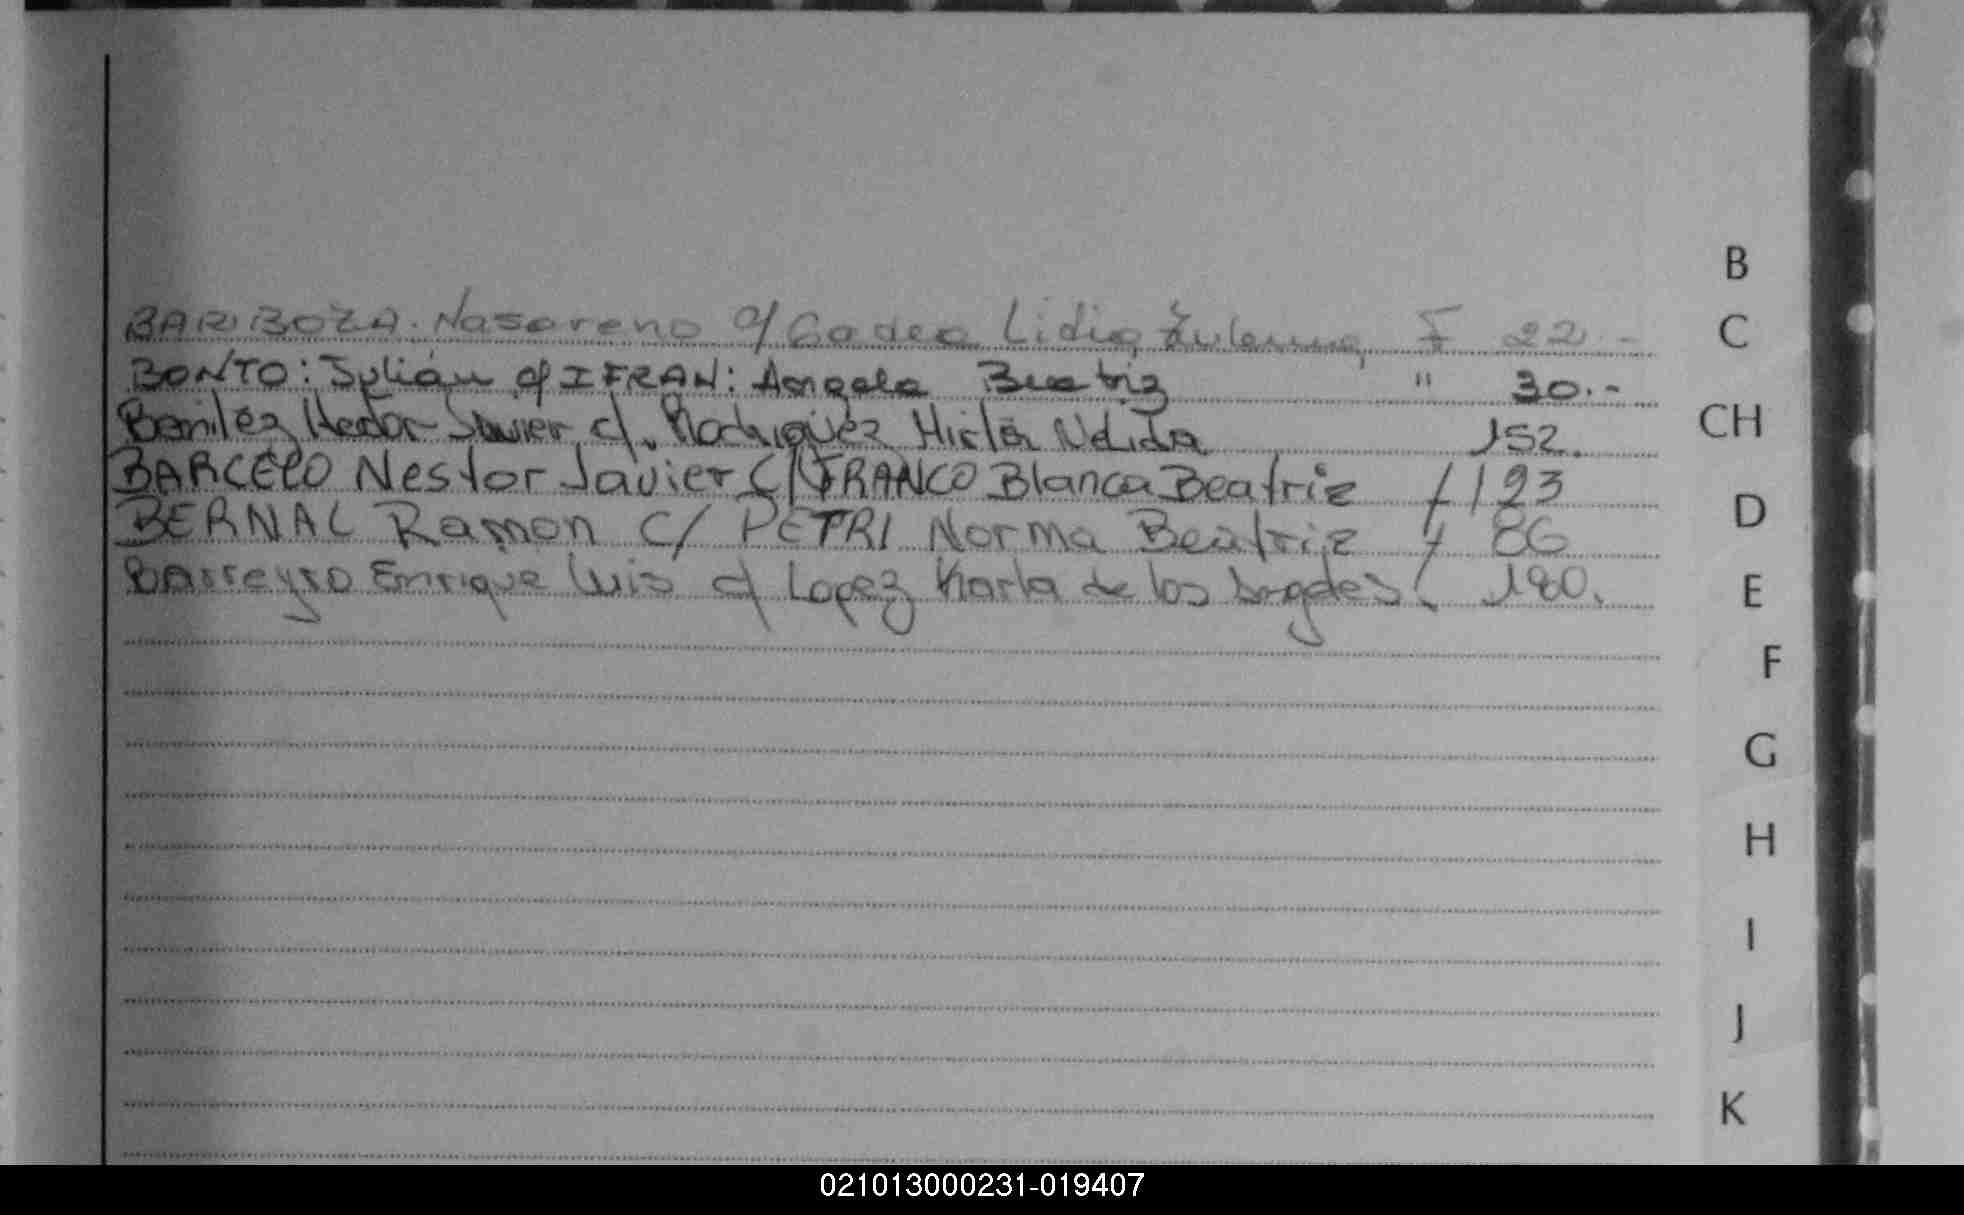 BARBOZA. Nasareno c/ Godeo Lidia Zulema, F 22.-
BONTO: Julián c/ IFRAN: Angela Beatriz " 30.-
Benitez Hector Javier c/. Rodriguez Mirta Nelida 152.
BARCELO Nestor Javier C/ FRANCO Blanca Beatriz f 123
BERNAL Ramon C/ PETRI Norma Beatriz f 86
Barreyro Enrique Luis c/ Lopez Karla de los Angeles f. 180.
B
C
CH
D
E
F
G
H
I
J
K
021013000231-019407